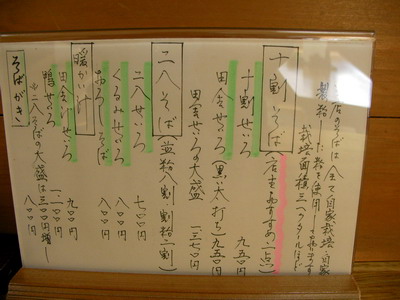 当店のそばは全て自家栽培、自家
製粉した粉を使用しております
栽培面積三ヘクタールほど
十割そば(店主おすすめの一品)
十割せいろ 九五〇円
田舎せいろ(黒、太打ち)九五〇円
田舎せいろの大盛 一三七〇円
二八そば(並粉八割 割粉二割)
二八せいろ 七〇〇円
くるみせいろ 八〇〇円
おろしそば 八〇〇円
暖かい汁
田舎汁せいろ 九〇〇円
鴨せいろ 一二〇〇円
※二八そばの大盛は三〇〇円増し
そばがき 八〇〇円